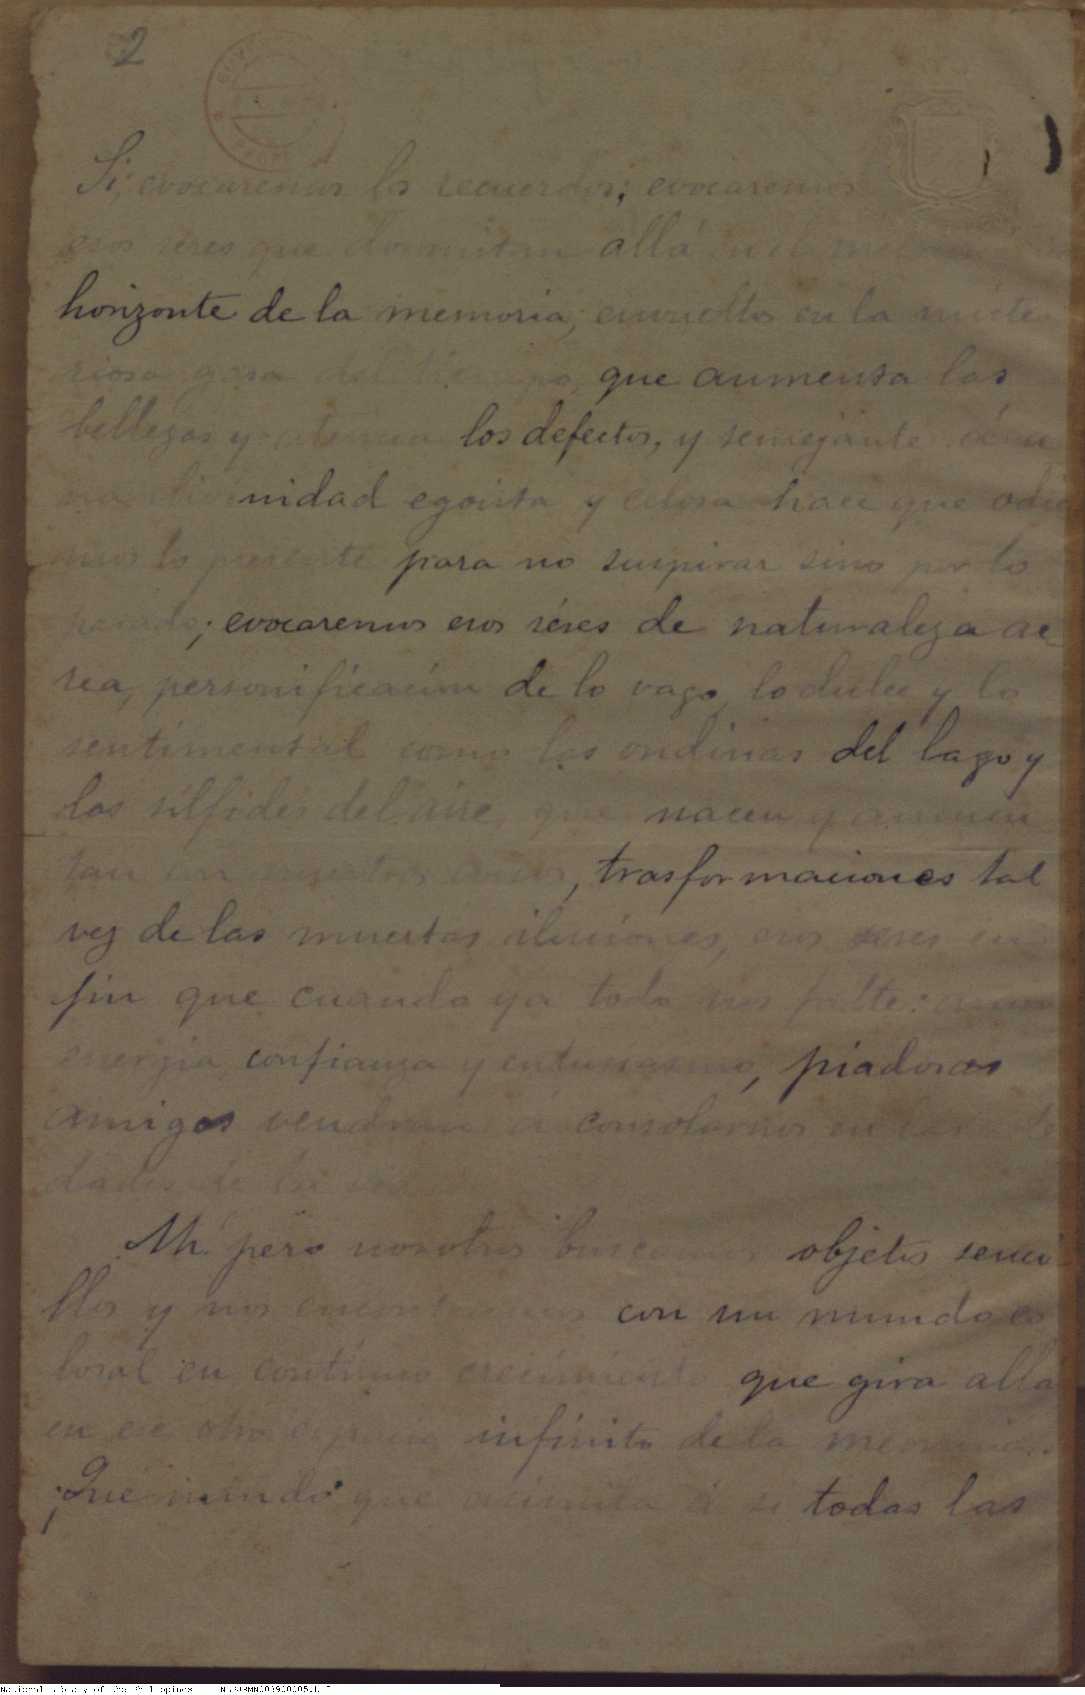 2
Si; evocaremos los recuerdos; evocaremos
esos séres que dormitan allá en el
horizonte de la memoria, envueltos en la miste
riosa gasa del tiempo, que aumenta las
bellezas y atenúa los defectos, y semejante á u
na divinidad egoista y celosa hace que odie
mos lo presente para no suspirar sino por lo
pasado; evocaremos esos séres de naturaleza ae
rea, personificacion de lo vago, lo dulce y lo
sentimental como las ondinas del lago y
las silfides del aire, que nacen y aumen
tan con nuestros años, trasformaciones tal
vez de las muertas ilusiones, esos seres en
fin que cuando ya todo nos falte: amor
energia, confianza y entusiasmo, piadosos
amigos vendran á consolarnos en las
dades de la
Ah! pero nosotros buscamos objetos senci
llos y nos encontramos con un mundo co
losal en contínuo crecimiento que gira allá
en ese otro espacio infinito de la memoria.
¡Qué mundo que asimila á si todas las
National Library of the Philippines